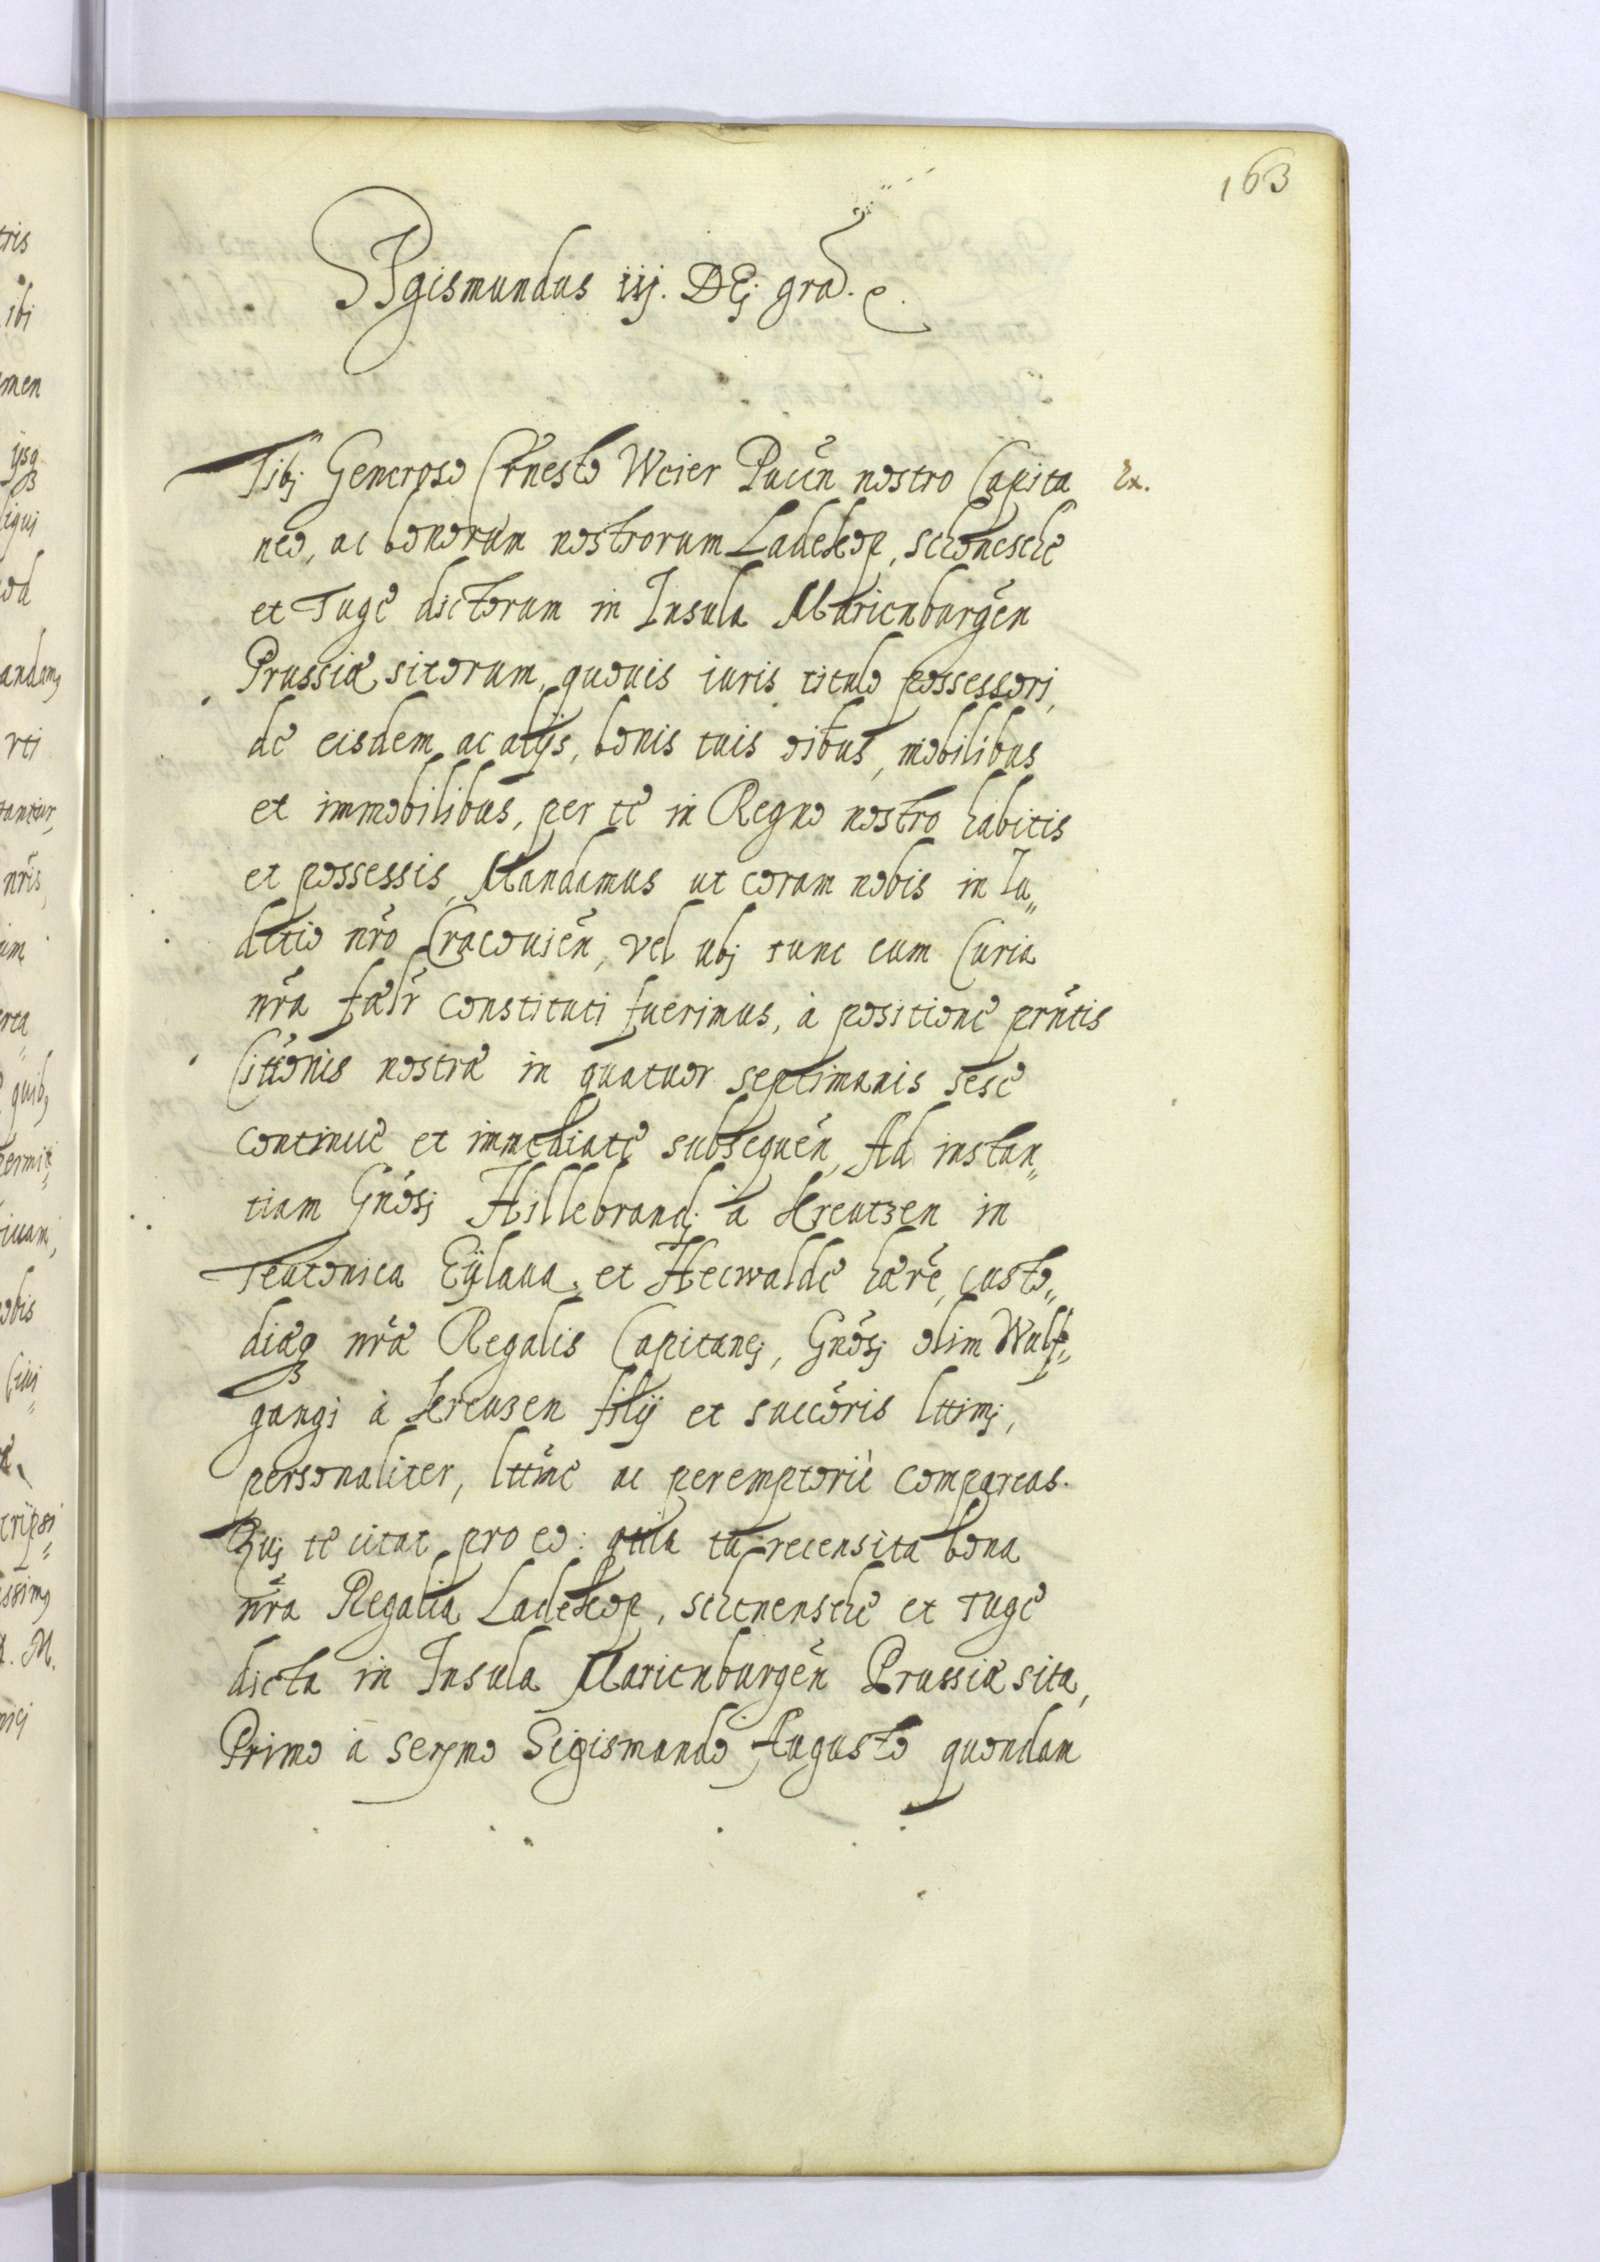 163
Sigismundus iij. DEj gra. &.
Tibj Generoso Ernesto Weier Pucēn nostro Capita
Ex.
neo, ac bonorum nostrorum Ladekop, schonesche
et Tuge dictorum in Insula Marienburgēn
Prussiæ sitorum, quouis iuris titulo possessorj,
de eisdem ac alijs, bonis tuis oībus, mobilibus
et immobilibus, per te in Regno nostro habitis
et possessis, Mandamus ut coram nobis in Iu„
ditio nrō Cracouiēn, vel ubj tunc cum Curia
nrā fælr̄ constituti fuerimus, à positione prn̄tis
Cittōnis nostræ in quatuor septimanis sese
continue et immediate subsequēn, Ad instan„
tiam Gnōsj Hillebrandj à Kreutzen in
Teutonica Eÿlaua, et Hecwalde hærē, custo„
diæq nrǣ Regalis Capitanej, Gnōsj olim Wulf„
gangi à Kreuzen filij et succōris lttimj,
personaliter, lttīme ac peremptoriè compareas.
Quj te citat pro eo: quia tu recensita bona
nrā Regalia Ladekop, schenensche et Tuge
dicta in Insula Marienburgēn Prussiæ sita,
Primo à Serᵐo Sigismundo Augusto quondam
tris
ibj
men
ijsq
andam
vti
tantur,
nrīs,
im
quib,
obis
ssimo
M.